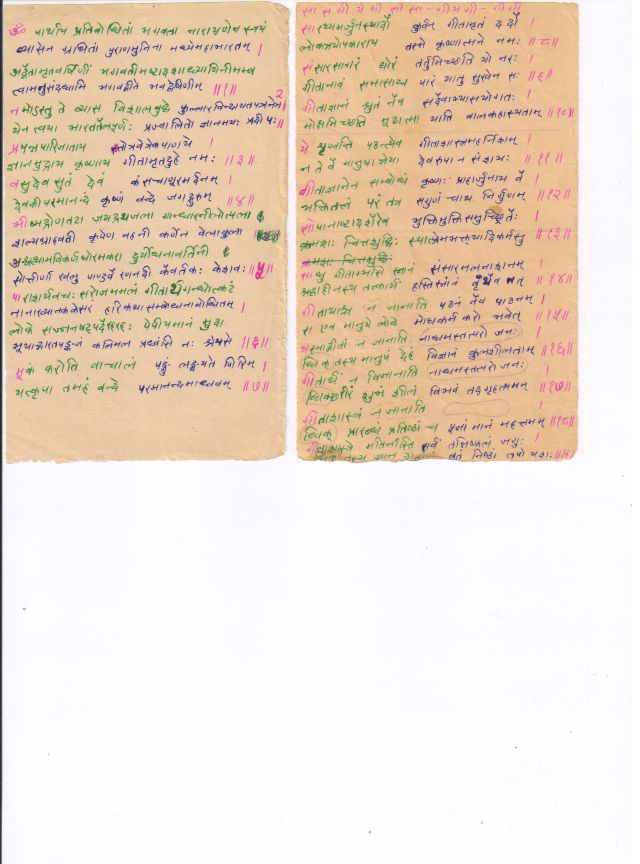 ॐ पार्थाय प्रतिबोधितां भगवता नारायणेन स्वयं
व्यासेन ग्रथितां पुराणमुनिना मध्येमहाभारतम् ।
अद्वैतामृतवर्षिणीं भगवतीमष्टादशाध्यायिनीमम्ब
त्वामनुसंदधामि भगवद्गीते भवद्वेषिणीम् ॥१॥
नमोऽस्तु ते व्यास विशालबुद्धे फुल्लारविन्दायतपत्रनेत्र।
येन त्वया भारततैलपूर्णः प्रज्वालितो ज्ञानमयः प्रदीपः॥ २
प्रपन्नपारिजाताय तोत्रवेत्रैकपाणये ।
ज्ञानमुद्राय कृष्णाय गीतामृतदुहे नमः ॥३॥
वसुदेव सुतं देवं कंसचाणूरमर्दनम् ।
देवकीपरमानन्दं कृष्णं वन्दे जगद्गुरुम् ॥४॥
भीष्मद्रोणतटा जयद्रथजला गान्धारनीलोत्पला
शल्यग्राहवती कृपेण वहनी कर्णेन वेलाकुला
अश्वत्थामविकर्णघोरमकरा दुर्योधनावर्तिनी
सोत्तीर्णा खलु पाण्डवै रणनदी कैवर्तकः केशवः ॥५॥
पाराशर्यवचः सरोजममलं गीतार्थगन्धोत्कटं
नानाख्यानककेसरं हरिकथासम्बोधनाबोधितम् ।
लोके सज्जनषट्पदैरहरहः पेपीयमानं मुदा
भूयाद्भारतपङ्कजं कलिमल प्रध्वंसि नः श्रेयसे ॥६॥
मूकं करोति वाचालं पङ्गुं लङ्घयते गिरिम् ।
यत्कृपा तमहं वन्दे परमानन्दमाधवम् ॥७॥
सारथ्यमर्जुनस्यादौ कुर्वन् गीतामृतं ददौ ।
लोकत्रयोपकाराय तस्मै कृष्णात्मने नमः ॥८॥
संसारसागरं घोरं तर्तुमिच्छति यो नरः ।
गीतानावं समासाद्य पारं यातु सुखेन सः ॥९॥
गीताज्ञानं श्रुतं नैव सदैवाभ्यासयोगतः ।
मोक्षमिच्छति मूढात्मा याति बालकहास्यताम् ॥१०॥
ये शृण्वन्ति पठन्त्येव गीताशास्त्रमहर्निशम् ।
न ते वै मानुषा ज्ञेया देवरूपा न संशयः ॥११॥
गीताज्ञानेन सम्बोधं कृष्णः प्राहार्जुनाय वै ।
भक्तितत्त्वं परं तत्र सगुणं चाथ निर्गुणम् ॥१२॥
सोपानाष्टादशैरेव भुक्तिमुक्तिसमुच्छ्रितैः ।
क्रमशः चित्तशुद्धिः स्यात्प्रेमभक्त्यादिकर्मसु ॥१३॥
साधु गीताम्भसि स्नानं संसारमलनाशनम् ।
श्रद्धाहीनस्य तत्कार्यं हस्तिस्नानं वृथैव तत् ॥१४॥
गीतायाश्च न जानाति पठनं नैव पाठनम् ।
स एव मानुषे लोके मोघकर्मकरो भवेत् ॥१५॥
यस्माद्गीतां न जानाति नाधमस्तत्परो जनः ।
धिक् तस्य मानुषं देहं विज्ञानं कुलशीलताम् ॥१६॥
गीतार्थं न विजानाति नाधमस्तत्परो जनः ।
धिक्शरीरं शुभं शीलं विभवं तद्गृहाश्रमम् ॥१७॥
गीताशास्त्रं न जानाति ।
धिक् प्रारब्धं प्रतिष्ठां च पूजां मानं महत्तमम् ॥१८॥
गीताशास्त्रे मतिर्नास्ति सर्वं तन्निष्फलं जगुः ।